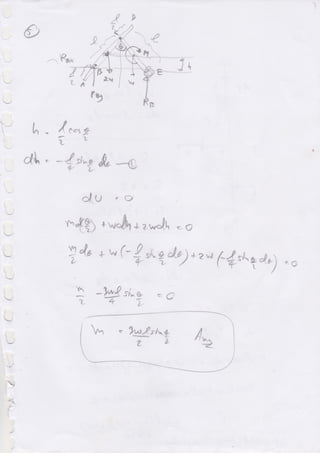 5
l/2
D
C
l
l
θ
M
P_Bx
l/2
B
A
2w
w
E
h
P_By
R_E
h = l/2 cos θ/2
dh = -l/4 sin θ/2 dθ —①
dU = 0
m d(θ/2) + wdh + 2wdh = 0
m/2 dθ + w(-l/4 sin θ/2 dθ) + 2w(-l/4 sin θ/2 dθ) = 0
m/2 - 3wl/4 sin θ/2 = 0
m = 3wl sin θ/2 / 2 Ans